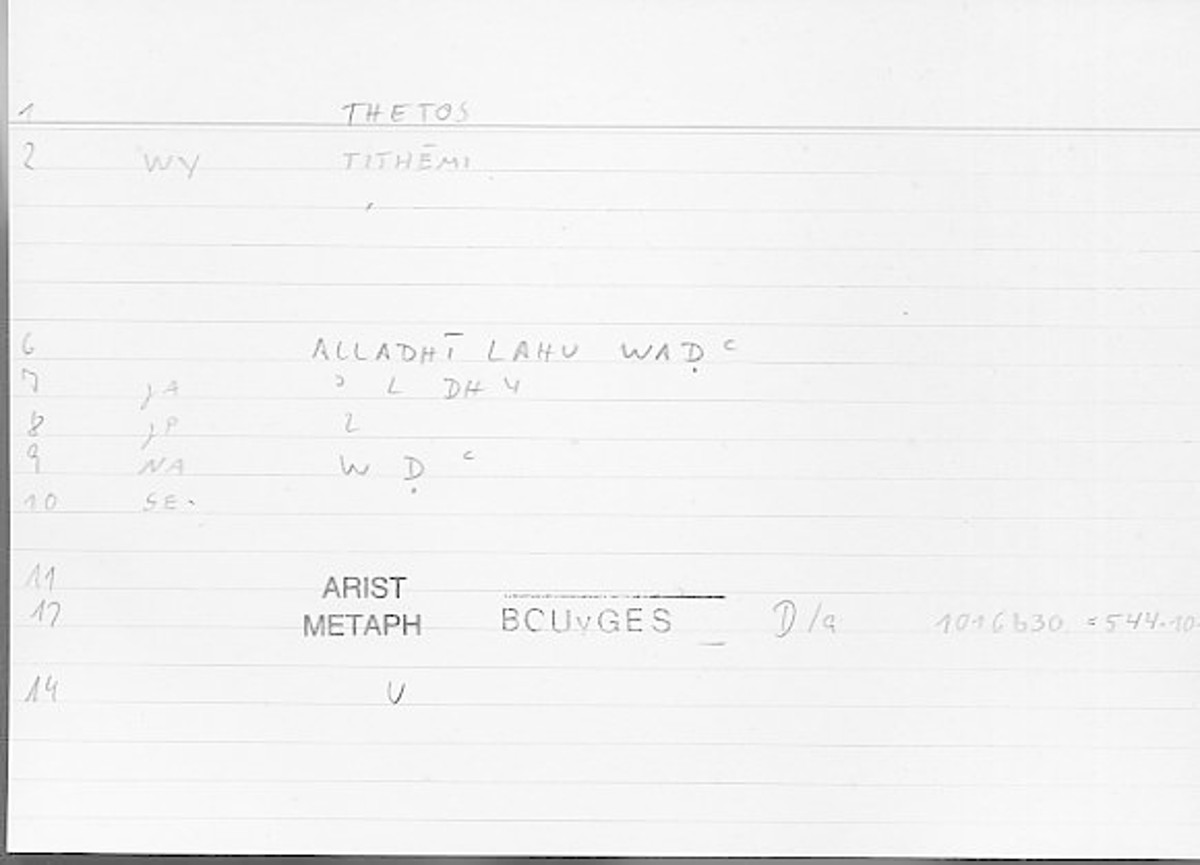 1 THETOS
2 WY TITHĒMI
6 ALLADHĪ LAHU WAḌ ͨ
7 JA ɔ L DH Y
8 JP L
9 NA W Ḍ ͨ
10 SE.
11 ARIST
12 METAPH BCUvGES D/a 1016b30 = 544.10
14 V